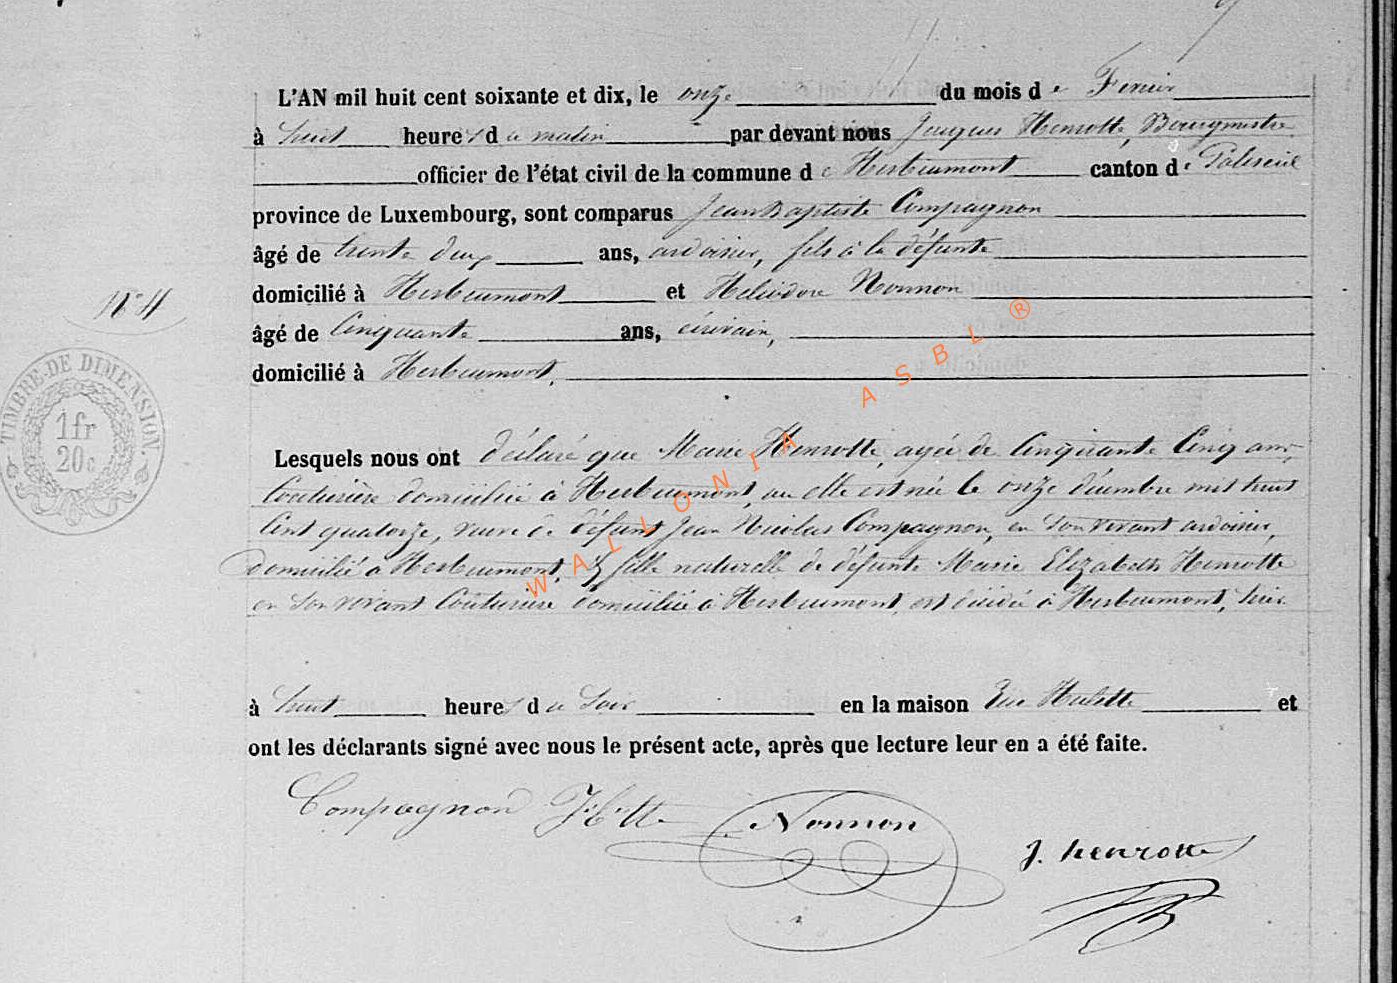 L'AN mil huit cent soixante et dix, le onze du mois de Fevrier
à huit heures du matin par devant nous Jacques Henrotte, Bourgmestre
officier de l'état civil de la commune de Herbeumont canton de Paliseul
province de Luxembourg, sont comparus Jean Baptiste Compagnon
âgé de trente deux ans, ardoisier, fils à la défunte
domicilié à Herbeumont et Heliodore Nonnon
âgé de Cinquante ans, écrivain,
domicilié à Herbeumont,
N° 4
TIMBRE DE DIMENSION.
1fr
20c
Lesquels nous ont déclaré que Marie Henrotte, agée de Cinquante Cinq ans,
Couturière domiciliée à Herbeumont, ou elle est née le onze décembre mil huit
Cent quatorze, veuve de défunt Jean Nicolas Compagnon, en son vivant ardoisier,
domicilié à Herbeumont, & fille naturelle de défunte Marie Elizabeth Henrotte
en son vivant Couturière domiciliée à Herbeumont, est décédée à Herbeumont, hier
à huit heures du Soir en la maison dite Hulette et
ont les déclarants signé avec nous le présent acte, après que lecture leur en a été faite.
Compagnon J.B.tte Nonnon
J. henrotte
WALLONIA ASBL ®